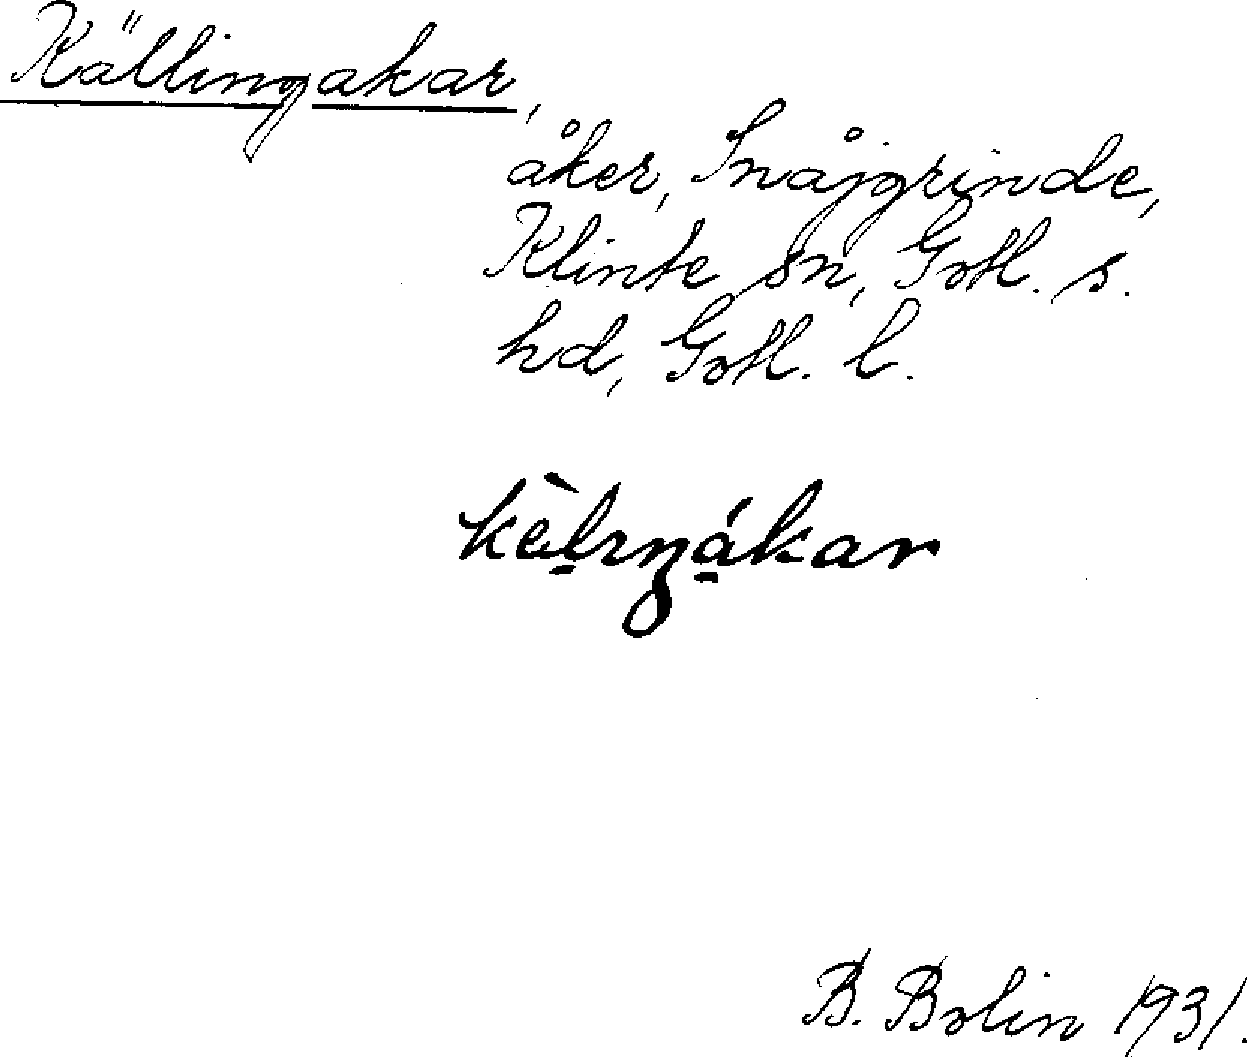 Källingakar,
åker, Snåjgrinde,
Klinte sn, Gotl. s.
hd, Gotl. l.
B. Bolin 1931.